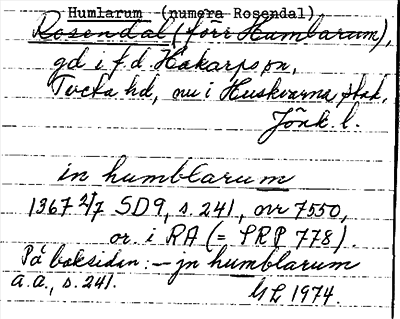 Humlarum (numera Rosendal)
Rosendal (förr Humlarum),
gd i f d Hakarps sn,
Tveta hd, nu i Huskvarna stad,
Jönk. l.
in humblarum
1367 2/7 SD9, s. 241, nr 7550,
or. i RA (= SRP 778).
På baksidan: – jn humblarum
a.a., s. 241.
GL 1974.